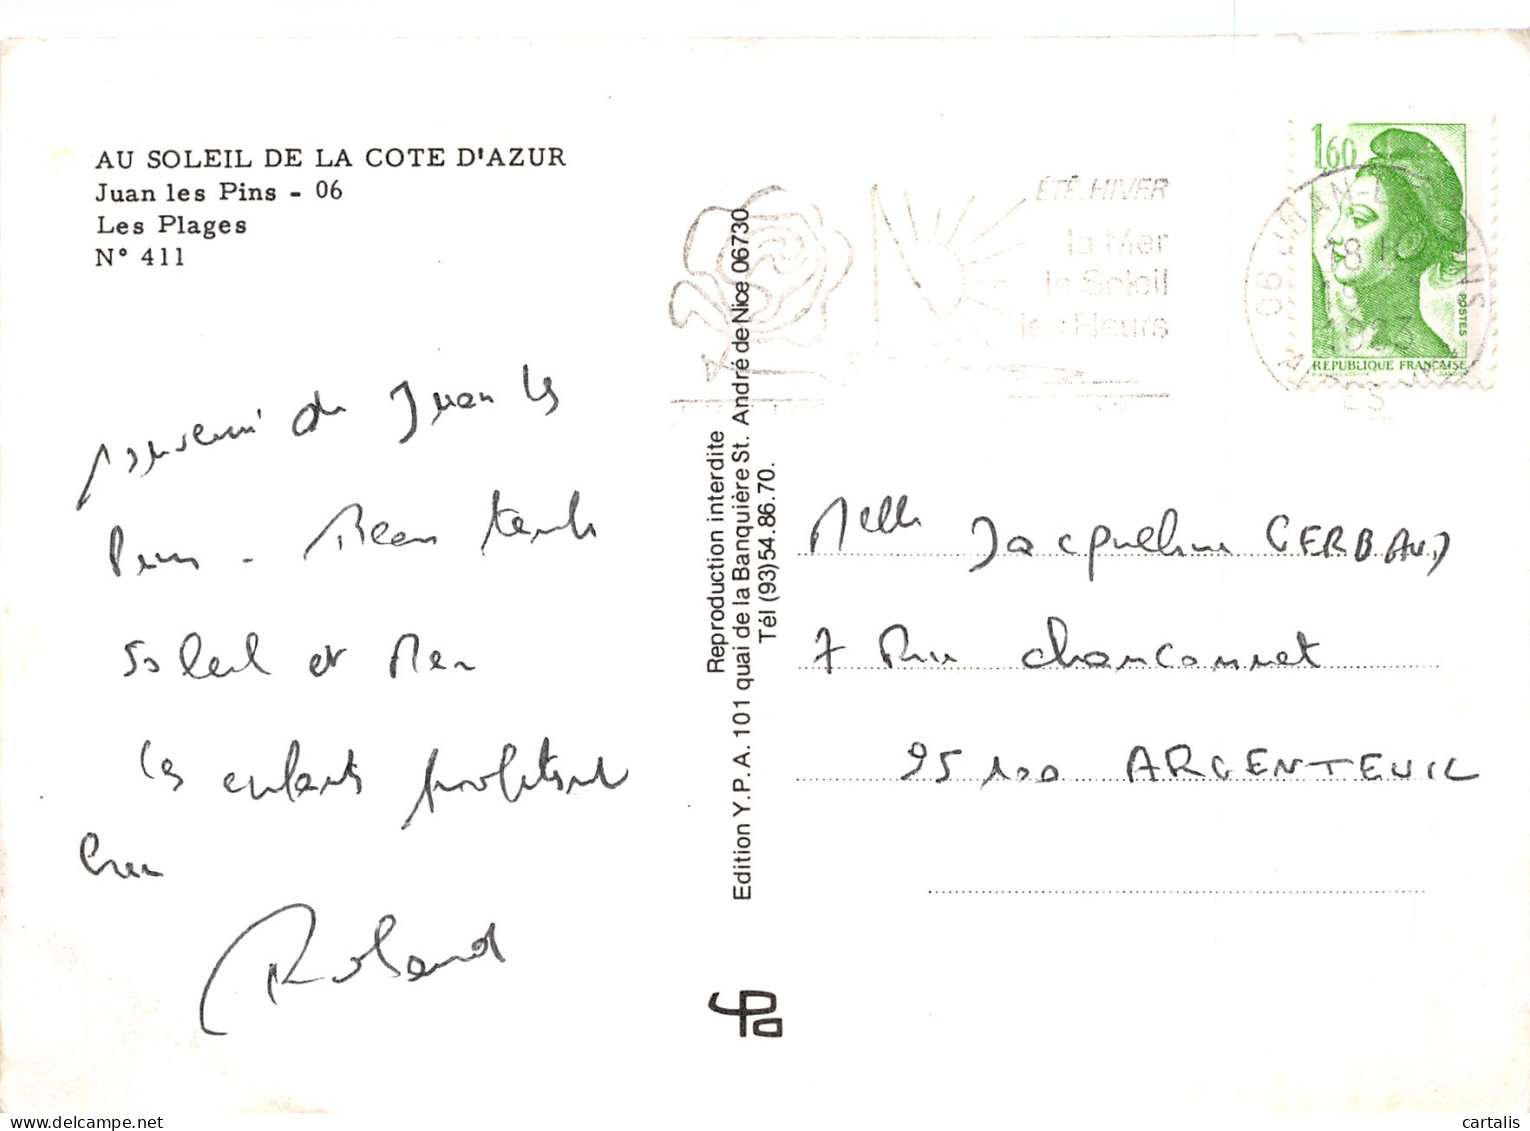 AU SOLEIL DE LA COTE D'AZUR
Juan les Pins - 06
Les Plages
N° 411
souvenir de Juan les
Pins - Beau temps
soleil et Mer
les enfants profitent
bien
Roland
Reproduction interdite
Edition Y.P.A. 101 quai de la Banquière St. André de Nice 06730
Tél (93) 54.86.70.
ÉTÉ, HIVER
la Mer
le Soleil
les Fleurs
1,60
18 H
POSTES
RÉPUBLIQUE FRANÇAISE
Melle Jacqueline GERBAUD
7 Rue Chanconnet
95100 ARGENTEUIL
cartalis